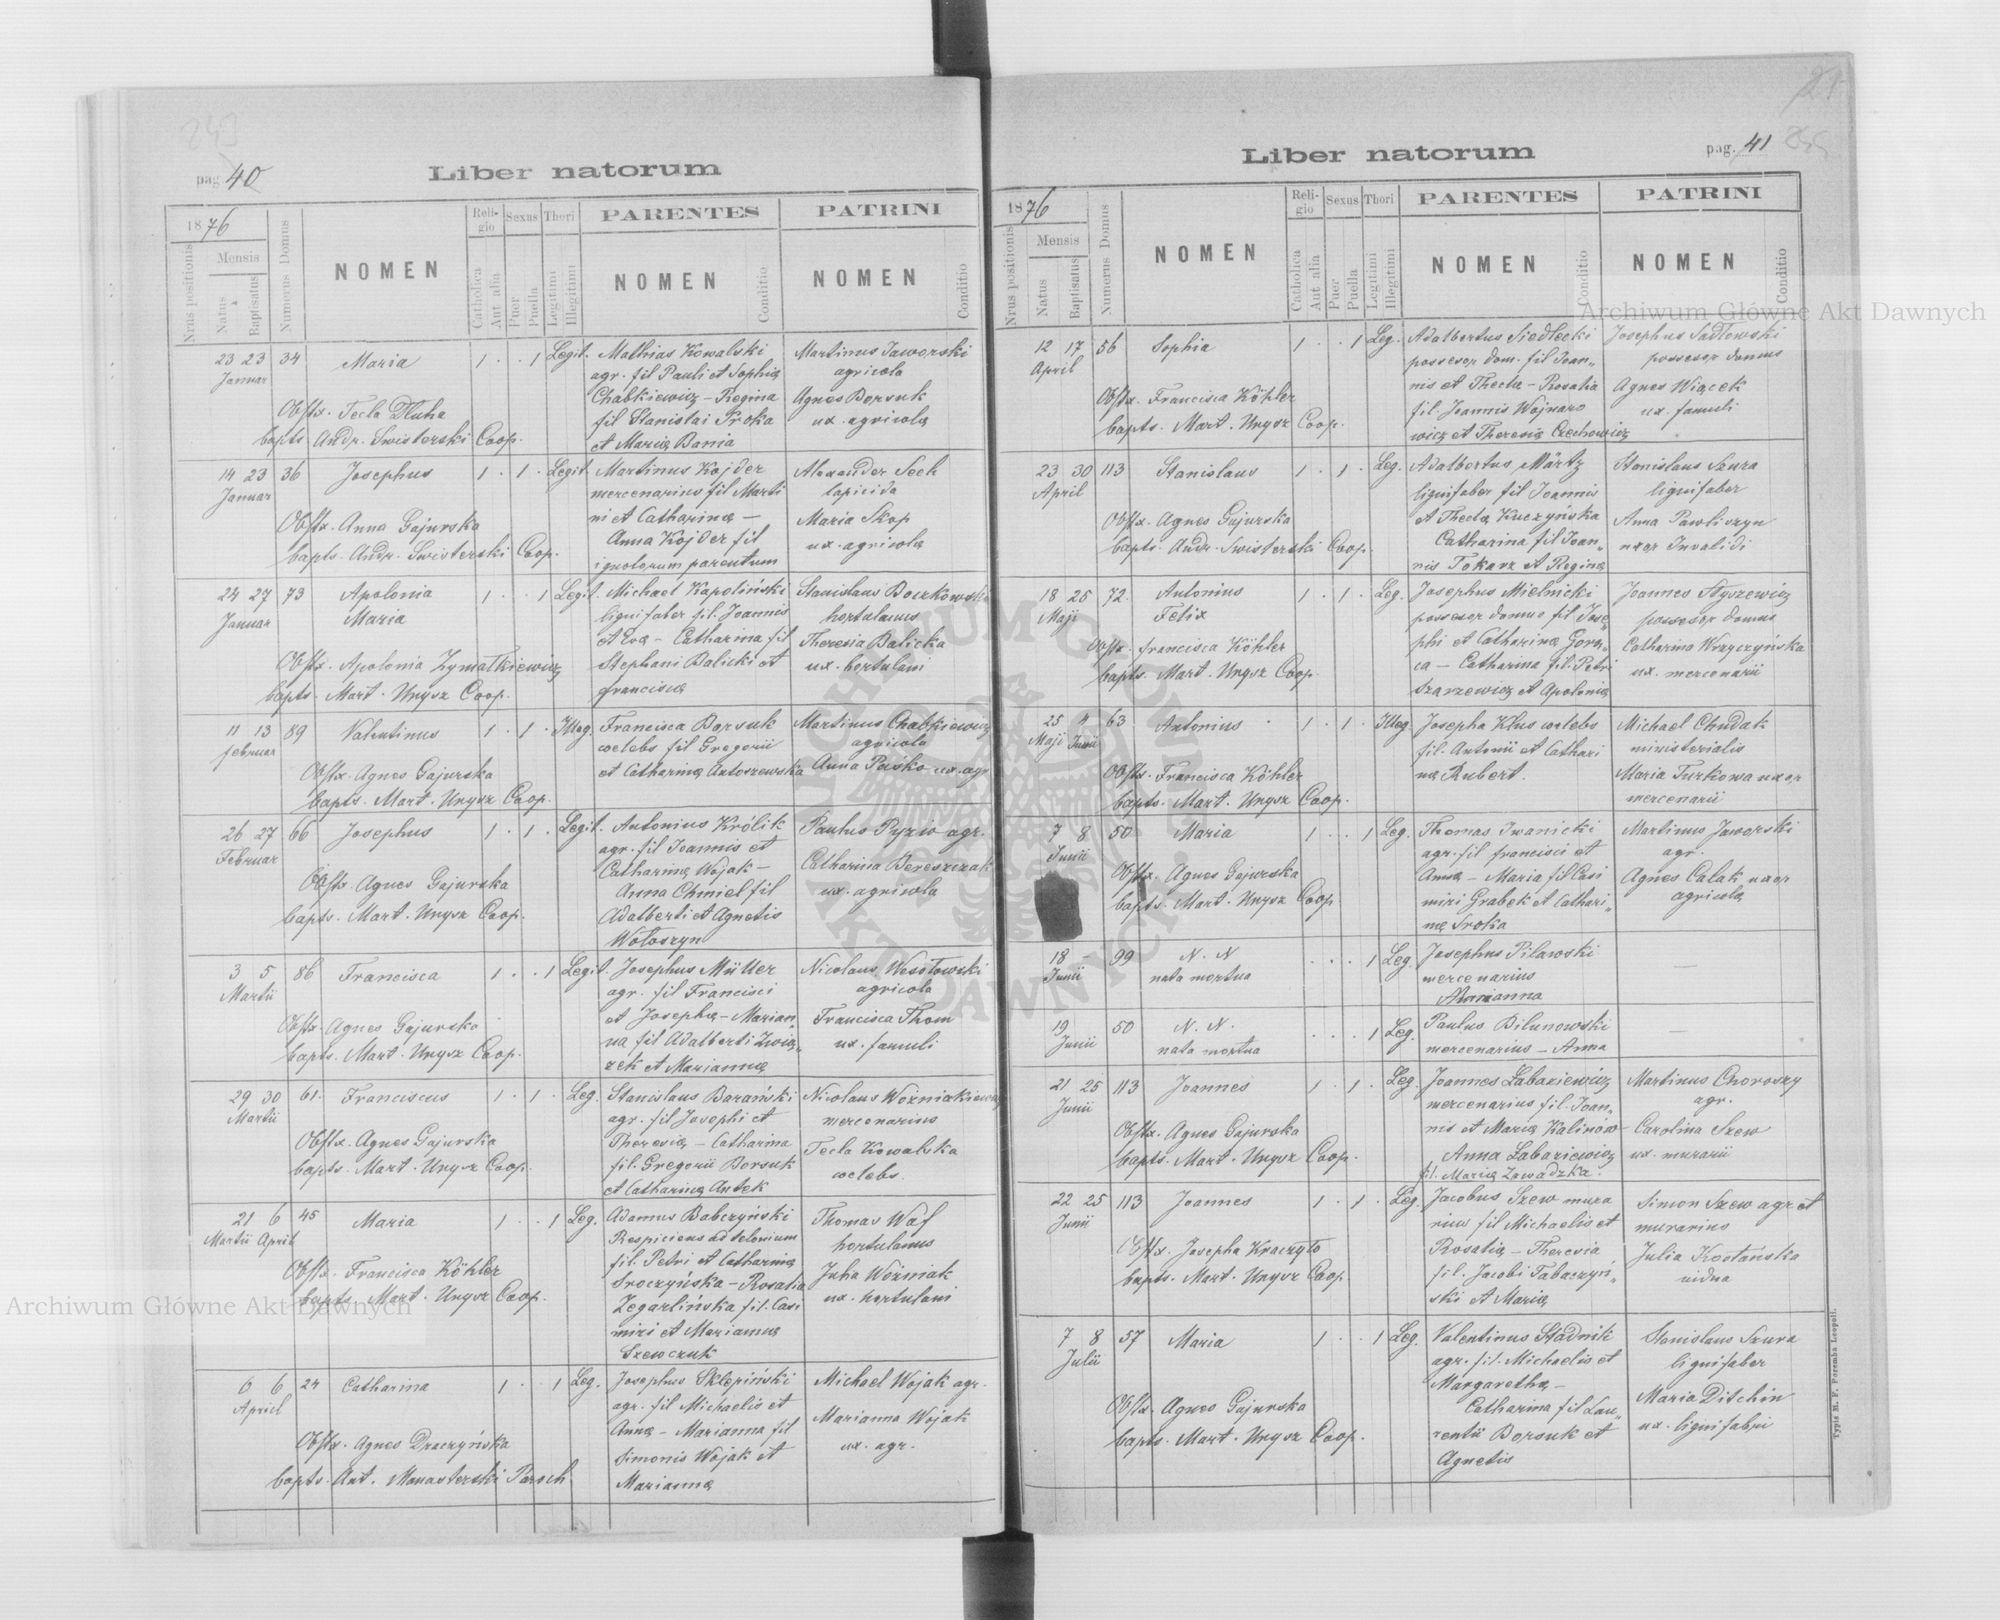 pag. 40
Liber natorum
1876
Nrus positionis
Mensis
Natus
Baptisatus
Numerus Domus
NOMEN
Reli-
gio
Catholica
Aut alia
Sexus
Puer
Puella
Thori
Legitimi
Illegitimi
PARENTES
NOMEN
Conditio
PATRINI
NOMEN
Conditio
23 23 34 Maria 1 · · 1 Legit.
Januar
Obstx. Tecla Dluha
bapts. Andr. Swisterski Coop.
Mathias Kowalski
agr. fil Pauli et Sophia
Chabkiewicz – Regina
fil Stanislai Sroka
et Maria Bania
Martinus Jaworski
agricola
Agnes Borsuk
ux. agricola
14 23 36 Josephus 1 · 1 · Legit.
Januar
Obstx. Anna Gajurska
bapts. Andr. Swisterski Coop.
Martinus Kojder
mercenarius fil Marti
ni et Catharina –
Anna Kojder fil
ignotorum parentum
Alexander Sech
lapicida
Maria Skop
ux. agricola
24 27 73 Apolonia 1 · · 1 Legit.
Januar Maria
Obstx. Apolonia Zymalkiewicz
bapts. Mart. Unysz Coop.
Michael Kapoliński
lignifaber fil. Joannis
et Eva – Catharina fil
Stephani Balicki et
francisca
Stanislaus Boczkowski
hortulanus
Theresia Balicka
ux. hortulani
11 13 89 Valentinus 1 · 1 · Illeg.
februar
Obstx. Agnes Gajurska
bapts. Mart. Unysz Coop.
Francisca Borsuk
coelebs fil Gregorii
et Catharina Antoszewska
Martinus Chabkiewicz
agricola
Anna Paśko ux. agr
26 27 66 Josephus 1 · 1 · Legit.
Februar
Obstx. Agnes Gajurska
bapts. Mart. Unysz Coop.
Antonius Królik
agr. fil Joannis et
Catharina Wojak –
Anna Chmiel fil
Adalberti et Agnetis
Wołoszyn
Paulus Pyzio agr.
Catharina Bereszczak
ux. agricola
3 5 86 Francisca 1 · · 1 Legit.
Martii
Obstx. Agnes Gajurska
bapts. Mart. Unysz Coop.
Josephus Müller
agr. fil Francisci
et Josepha – Marian„
na fil Adalberti Zwią„
zek et Marianna
Nicolaus Wesołowski
agricola
Francisca Thom
ux. famuli
29 30 61 Franciscus 1 · 1 · Leg.
Martii
Obstx. Agnes Gajurska
bapts. Mart. Unysz Coop.
Stanislaus Barański
agr. fil Josephi et
Theresia – Catharina
fil. Gregorii Borsuk
et Catharina Antek
Nicolaus Woźniakiewicz
mercenarius
Tecla Kowalska
coelebs.
21 6 45 Maria 1 · · 1 Leg.
Martii April
Obstx. Francisca Köhler
bapts. Mart. Unysz Coop.
Adamus Babczyński
Respiciens ad telonium
fil. Petri et Catharina
Sroczyńska – Rosalia
Zegarlińska fil. Casi
miri et Marianna
Szewczuk
Thomas Waf
hortulanus
Julia Woźniak
ux. hortulani
6 6 24 Catharina 1 · · 1 Leg.
April
Obstx. Agnes Draczyńska
bapts. Ant. Monasterski Paroch
Josephus Sklepiński
agr. fil Michaelis et
Anna – Marianna fil
Simonis Wojak et
Marianna
Michael Wojak agr.
Marianna Wojak
ux. agr.
Liber natorum
pag. 41
1876
Nrus positionis
Mensis
Natus
Baptisatus
Numerus Domus
NOMEN
Reli-
gio
Catholica
Aut alia
Sexus
Puer
Puella
Thori
Legitimi
Illegitimi
PARENTES
NOMEN
Conditio
PATRINI
NOMEN
Conditio
12 17 56 Sophia 1 · · 1 Leg.
April
Obstx. Francisca Köhler
bapts. Mart. Unysz Coop.
Adalbertus Siedlecki
possesor dom. fil Joan„
nis et Thecla – Rosalia
fil. Joannis Wojnaro
wicz et Theresia Czechowicz
Josephus Sadłowski
possesor domus
Agnes Wiącek
ux. famuli
23 30 113 Stanislaus 1 · 1 · Leg.
April
Obstx. Agnes Gajurska
bapts. Andr. Swisterski Coop.
Adalbertus Märtz
lignifaber fil Joannis
et Thecla Kuczyńska
Catharina fil Joan„
nis Tokarz et Regina
Stanislaus Szura
lignifaber
Anna Pawliszyn
uxor Invalidi
18 25 72 Antonius 1 · 1 · Leg.
Maji Felix
Obstx. francisca Köhler
bapts. Mart. Unysz Coop.
Josephus Mielnicki
possesor domus fil Jose„
phi et Catharina Gorni„
ca – Catharina fil. Petri
Szarzewicz et Apolonia
Joannes Styszewicz
possesor domus
Catharina Wrzyczyńska
ux. mercenarii
25 4 63 Antonius 1 · 1 · Illeg.
Maji Junii
Obstx. Francisca Köhler
bapts. Mart. Unysz Coop.
Josepha Klus coelebs
fil. Antonii et Cathari
na Rubert.
Michael Chudak
ministerialis
Maria Turkowa uxor
mercenarii
7 8 50 Maria 1 · · 1 Leg.
Junii
Obstx. Agnes Gajurska
bapts. Mart. Unysz Coop
Thomas Iwanicki
agr. fil francisci et
Anna – Maria fil Casi
miri Grabek et Cathari„
na Sroka
Martinus Jaworski
agr.
Agnes Calak uxor
agricola
18 – 99 N. N · · · 1 Leg.
Junii nata mortua
Josephus Pilawski
mercenarius
Marianna
—
19 50 N. N. · · · 1 Leg.
Junii nata mortua
Paulus Bilunowski
mercenarius – Anna
—
21 25 113 Joannes 1 · 1 · Leg.
Junii
Obstx. Agnes Gajurska
bapts. Mart. Unysz Coop.
Joannes Labaziewicz
mercenarius fil. Joan„
nis et Maria Kalinow
Anna Labaziewicz
fil. Maria Zawadzka.
Martinus Choroszy
agr.
Carolina Szew
ux. murarii
22 25 113 Joannes 1 · 1 · Leg.
Junii
Obstx. Josepha Kraczyło
bapts. Mart. Unysz Coop
Jacobus Szew mura
rius fil Michaelis et
Rosalia – Theresia
fil. Jacobi Tabaczyń„
ski et Maria
Simon Szew agr et
murarius
Julia Kostańska
vidua
7 8 57 Maria 1 · · 1 Leg.
Julii
Obstx. Agnes Gajurska
bapts. Mart. Unysz Coop.
Valentinus Stadnik
agr. fil. Michaelis et
Margaretha –
Catharina fil Lau„
rentii Borsuk et
Agnetis
Stanislaus Szura
lignifaber
Maria Ditchin
ux. lignifabri
Typis M. F. Poremba Leopoli.
Archiwum Główne Akt Dawnych
Archiwum Główne Akt Dawnych
ARCHIWUM GŁÓWNE
AKT DAWNYCH